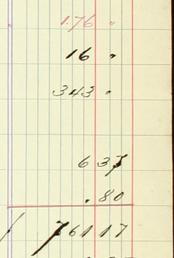 1.76 "
16 "
343 "
6 37
.80
761 17